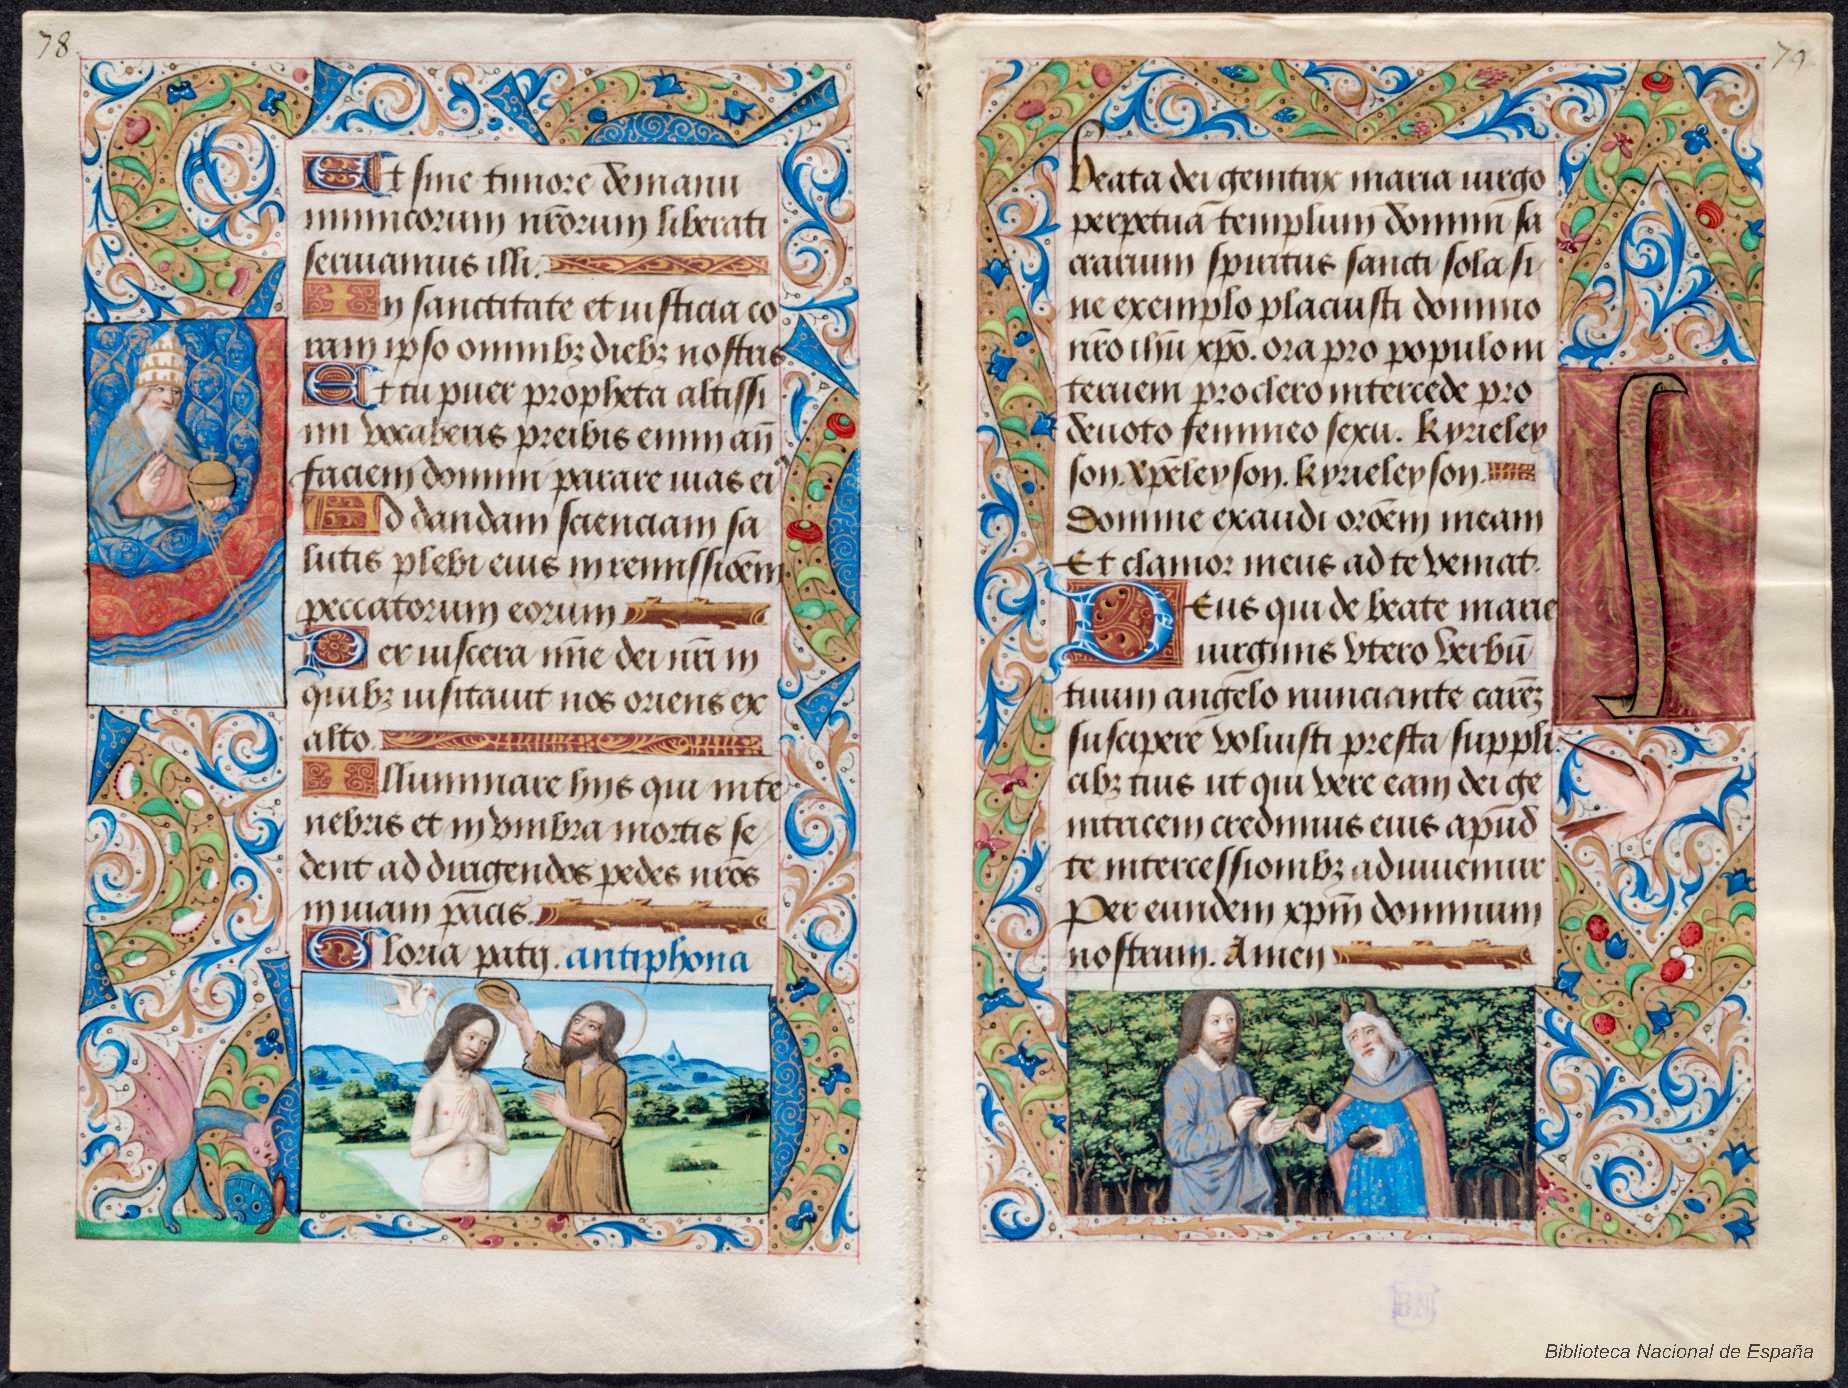 78
Et sine timore de manu
inimicorum nr̄orum liberati
seruiamus illi.
In sanctitate et iusticia co
ram ipso omnibꝫ diebꝫ nostris
Et tu puer propheta altissi
mi vocaberis preibis enim an̄
faciem domini parare uias ei9
Ad dandam scienciam sa
lutis plebi eius in remissiōem
peccatorum eorum
Per uiscera mīe dei nr̄i in
quibꝫ uisitauit nos oriens ex
alto.
Illuminare hiis qui in te
nebris et in vmbra mortis se
dent ad dirigendos pedes nr̄os
in uiam pacis.
Gloria patri. antiphona
79
Beata dei genitrix maria uirgo
perpetua templum domini sa
crarium spiritus sancti sola si
ne exemplo placuisti domino
nr̄o ihū xp̄o. ora pro populo in
terueni pro clero intercede pro
deuoto femineo sexu. kyrieley
son. xp̄eleyson. kyrieleyson.
Domine exaudi orōem meam
Et clamor meus ad te veniat.
Deus qui de beate marie
uirginis vtero verbū
tuum angelo nunciante carēꝫ
suscipere voluisti presta suppli
cibꝫ tuis ut qui vere eam dei ge
nitricem credimus eius apud
te intercessionibꝫ adiuuemur
Per eundem xp̄m dominum
nostrum. Amen
BN
Biblioteca Nacional de España